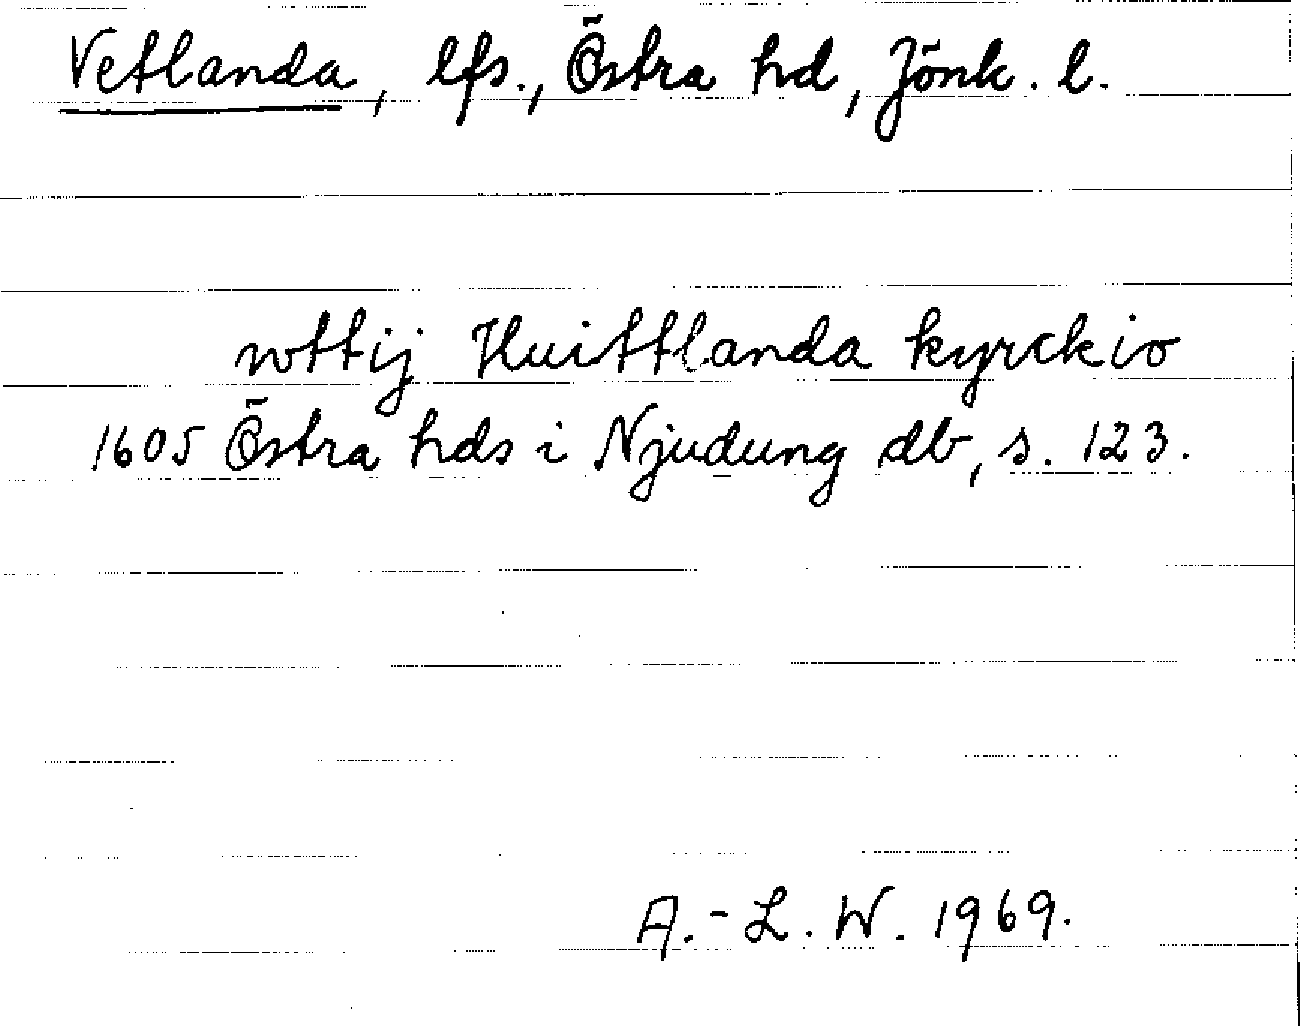 Vetlanda, lfs., Östra hd, Jönk. l.
wttij Huittlanda kyrckio
1605 Östra hds i Njudung db, s. 123.
A.-L. W. 1969.